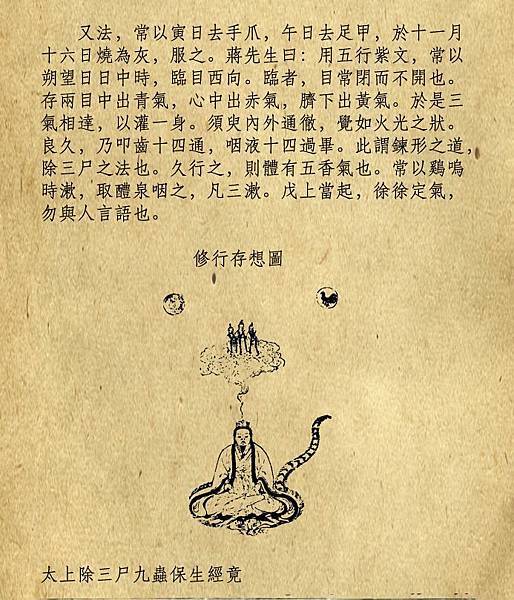 又法，常以寅日去手爪，午日去足甲，於十一月
十六日燒為灰，服之。蔣先生曰：用五行紫文，常以
朔望日日中時，臨目西向。臨者，目常閉而不開也。
存兩目中出青氣，心中出赤氣，臍下出黃氣。於是三
氣相達，以灌一身。須臾內外通徹，覺如火光之狀。
良久，乃叩齒十四通，咽液十四過畢。此謂鍊形之道，
除三尸之法也。久行之，則體有五香氣也。常以鷄鳴
時漱，取醴泉咽之，凡三漱。戊上當起，徐徐定氣，
勿與人言語也。
修行存想圖
太上除三尸九蟲保生經竟